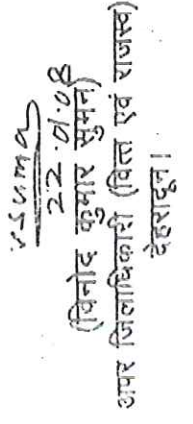 vsuman
22.01.08
(विनोद कुमार सुमन)
अपर जिलाधिकारी (वित्त एवं राजस्व)
देहरादून।